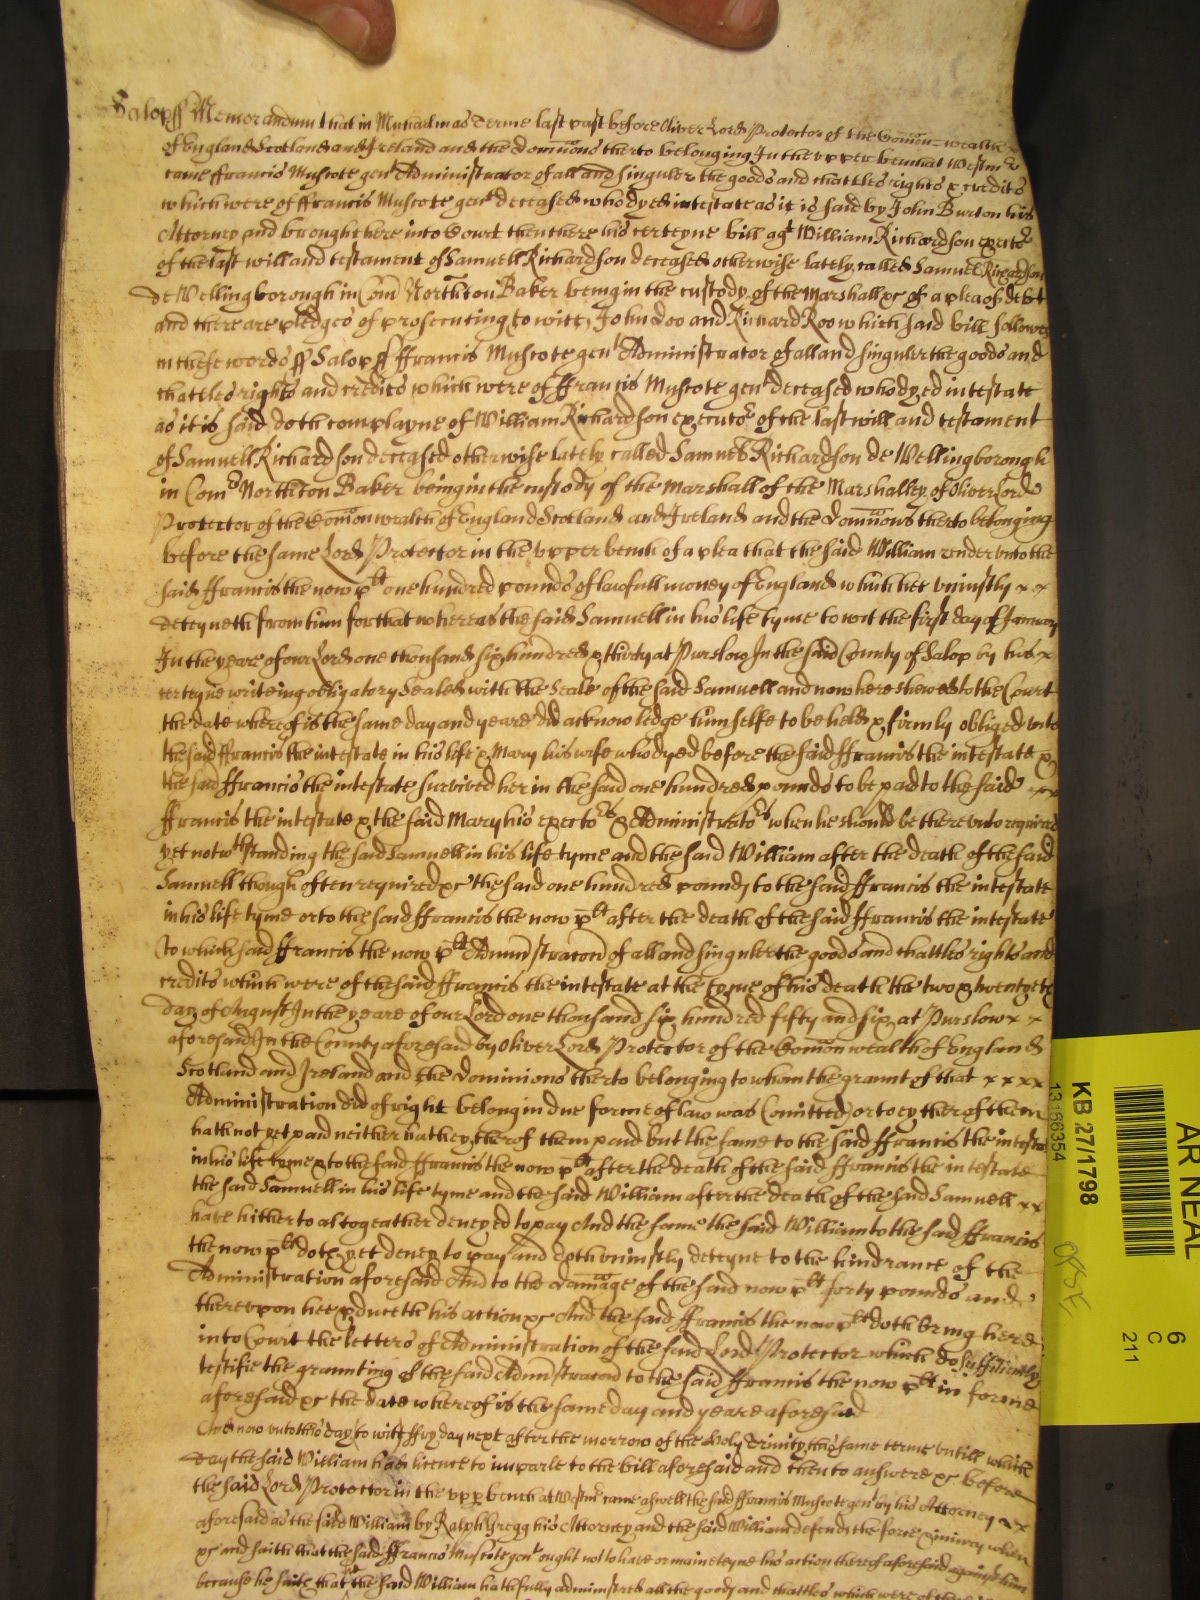 Salop ss Memorandum that in Michaelmas Terme last past before Oliver Lord Protector of the Comon=wealth
of England Scotland and Ireland and the Dominions therto belonging In the upper bench at Westmr
came ffrancis Muscote gen Administrator of all and singuler the goods and chattles rights & credits
which were of ffrancis Muscote gent deceased who dyed intestate as it is said by John Burton his
Attorney and brought here into Court then there his certeyne bill agt William Richardson exector
of the last will and testament of Samuell Richardson deceased otherwise lately called Samuel Richardson
de Wellingborough in Com Northton Baker being in the custody of the Marshall &c of a plea of debt
and there are pledges of prosecuting to witt, John Doo and Richard Roo which said bill followes
in these words ss Salop ss ffrancis Muscote gent Administrator of all and singuler the goods and
chattles rights and credits which were of ffrancis Muscote gent deceased who dyed intestate
as it is said doth complayne of William Richardson executor of the last will and testament
of Samuell Richardson deceased otherwise lately called Samuel Richardson de Wellingborough
in Comd Northton Baker being in the custody of the Marshall of the Marshalsey of Oliver Lord
Protector of the Comonwealth of England Scotland and Ireland and the Dominions therto belonging
before the same Lord Protector in the upper bench of a plea that the said William render unto the
said ffrancis the now plt one hundred pounds of lawfull money of England which hee uniustly
deteyneth from him for that whereas the said Samuell in his life tyme to wit the first day of January
In the yeare of our Lord one thousand six hundred & thirty at Purslow In the said County of Salop by his
certeyne writeing obligatory Sealed with the Seale of the said Samuell and now here shewed to the Court
the date wherof is the same day and yeare did acknowledge himselfe to be held & firmly obliged unto
the said ffrancis the intestate in his life & Mary his wife who dyed before the said ffrancis the intestate &
the said ffrancis the intestate survived her in the said one hundred pounds to be paid to the said
ffrancis the intestate & the said Mary his exectors & Administrators when he should be therevnto required
yet notwthstanding the said Samuell in his life tyme and the said William after the death of the said
Samuell though often required &c the said one hundred pounds to the said ffrancis the intestate
in his life tyme or to the said ffrancis the now plt after the death of the said ffrancis the intestate
(to which said ffrancis the now plt Administracon of all and singuler the goods and chattles rights and
credits which were of the said ffrancis the intestate at the tyme of his death the two & twentyeth
day of August In the yeare of our Lord one thousand six hundred fifty and six at Purslow
aforesaid In the County aforesaid by Oliver Lord Protector of the Comon wealth of England
Scotland and Ireland and the Dominions therto belonging to whom the graunt of that
Administration did of right belong in due forme of law was Comitted) or to eyther of them
hath not yet paid neither hath eyther of them paid but the same to the said ffrancis the intestate
in his life tyme & to the said ffrancis the now plt after the death of the said ffrancis the intestate
the said Samuell in his life tyme and the said William after the death of the said Samuell
have hitherto altogeather denyed to pay And the same the said William to the said ffrancis
the now plt doth yet deney to pay and doth uniustly deteyne to the hindrance of the
Administration aforesaid And to the damage of the said now plt forty pounds and
therevpon hee pduceth his action &c And the said ffrancis the now plt doth bring here
into Court the letters of Administration of the said Lord Protector which do sufficiently
testifie the graunting of the said Administracon to the said ffrancis the now plt in forme
aforesaid &c the date wherof is the same day and yeare aforesaid
And now unto this day to witt ffryday next after the morrow of the holy Trinity this same terme untill which
day the said William hath licence to imparle to the bill aforesaid and then to answere &c before
the said Lord Protector in the upp bench at Westmr came aswell the said ffrancis Muscote gen by his Attorney
aforesaid as the said William by Ralph Gregg his Attorney and the said William defends the force & iniury when
&c and saith that the said ffrancis Muscote gent ought not to have or mainteyne his action therof aforesaid against him
because he saith that the said William hath fully administred all the goods and chattles which were of the
KB 27/1798
13166354
AR NEAL
6
C
211